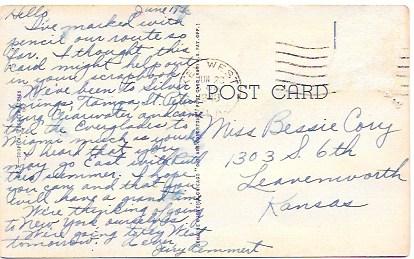 Hello June 17th
I've marked with
pencil our route so
far. I thought this
card might help out
in your scrapbook.
We've been to Silver
Springs, Tampa, St. Peters
burg, Clearwater and came
thru the Everglades to
Miami much as you
I heard that you
may go East with Ruth
this summer. I hope
you can and that you
will have a grand time
We're thinking of going
to New York ourselves.
We're going to Key West
tomorrow.
Jerry Remmert
KEY WEST
JUN 20
POST CARD
Miss Bessie Cory
1303 S. 6th
Leavenworth
Kansas